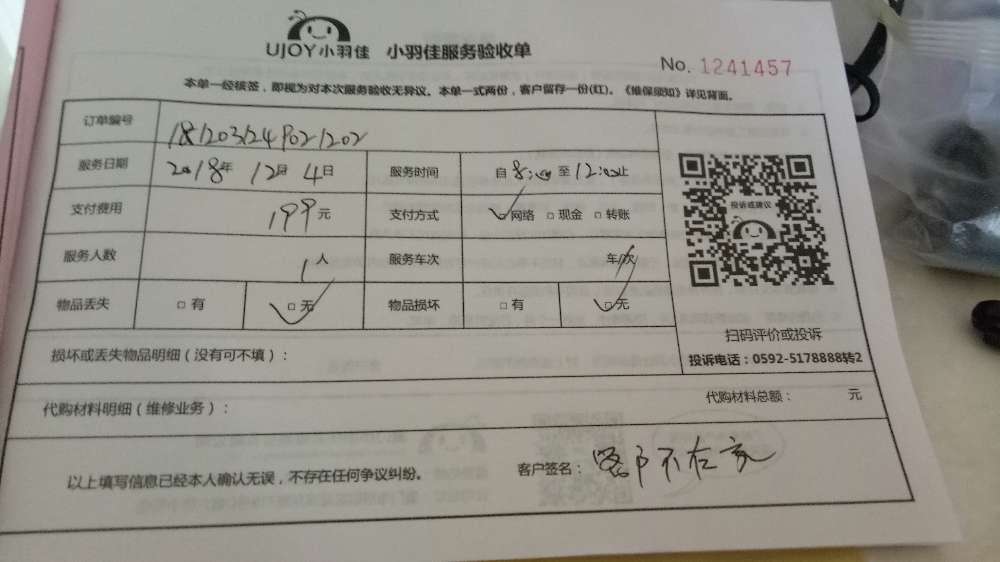 UJOY小羽佳 小羽佳服务验收单
No. 1241457
本单一经核签，即视为对本次服务验收无异议。本单一式两份，客户留存一份(红)。《维保须知》详见背面。
订单编号 1812031249021202
服务日期 2018年 12月 4日 服务时间 自8:00至12:00止
支付费用 199元 支付方式 网络 □现金 □转账
服务人数 1人 服务车次 车/次
物品丢失 □有 □无 物品损坏 □有 □无
投诉或建议
扫码评价或投诉
投诉电话：0592-5178888转2
损坏或丢失物品明细（没有可不填）：
代购材料明细（维修业务）： 代购材料总额： 元
以上填写信息已经本人确认无误，不存在任何争议纠纷。 客户签名：客户不在家